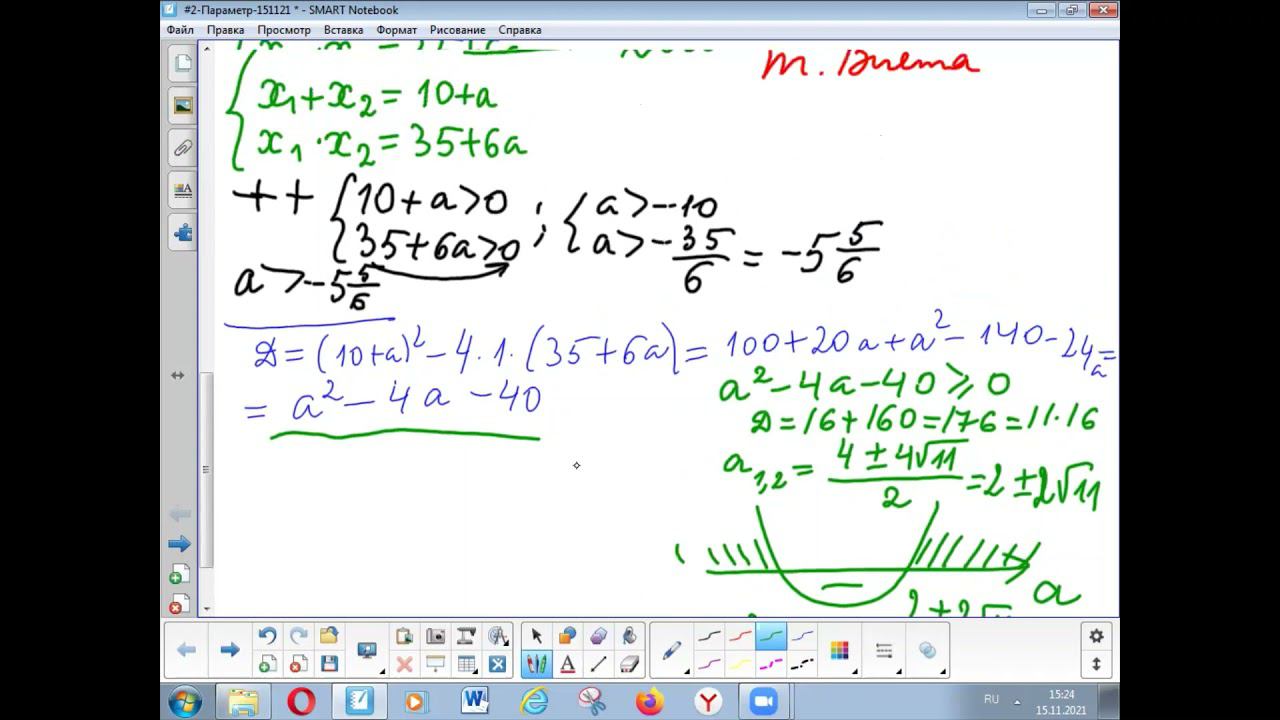 #2-Параметр-151121 * - SMART Notebook
Файл Правка Просмотр Вставка Формат Рисование Справка
т. Виета
x₁+x₂ = 10+a
x₁·x₂ = 35+6a
++ { 10+a>0 ; { a>-10
{ 35+6a>0 ; { a>-35/6 = -5 5/6
a>-5 5/6
D = (10+a)² - 4·1·(35+6a) = 100+20a+a²-140-24a =
= a² - 4a - 40
a²-4a-40⩾0
D=16+160=176=11·16
a₁,₂ = (4±4√11)/2 = 2±2√11
−
a
RU
15:24
15.11.2021